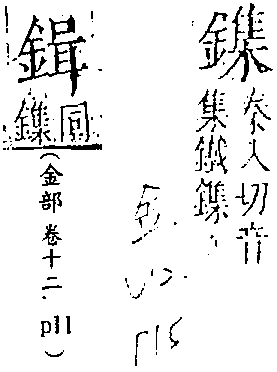 鏶
秦入切音
集鐵鏶
鍓
同
鏶
(金部 卷十二. p11)